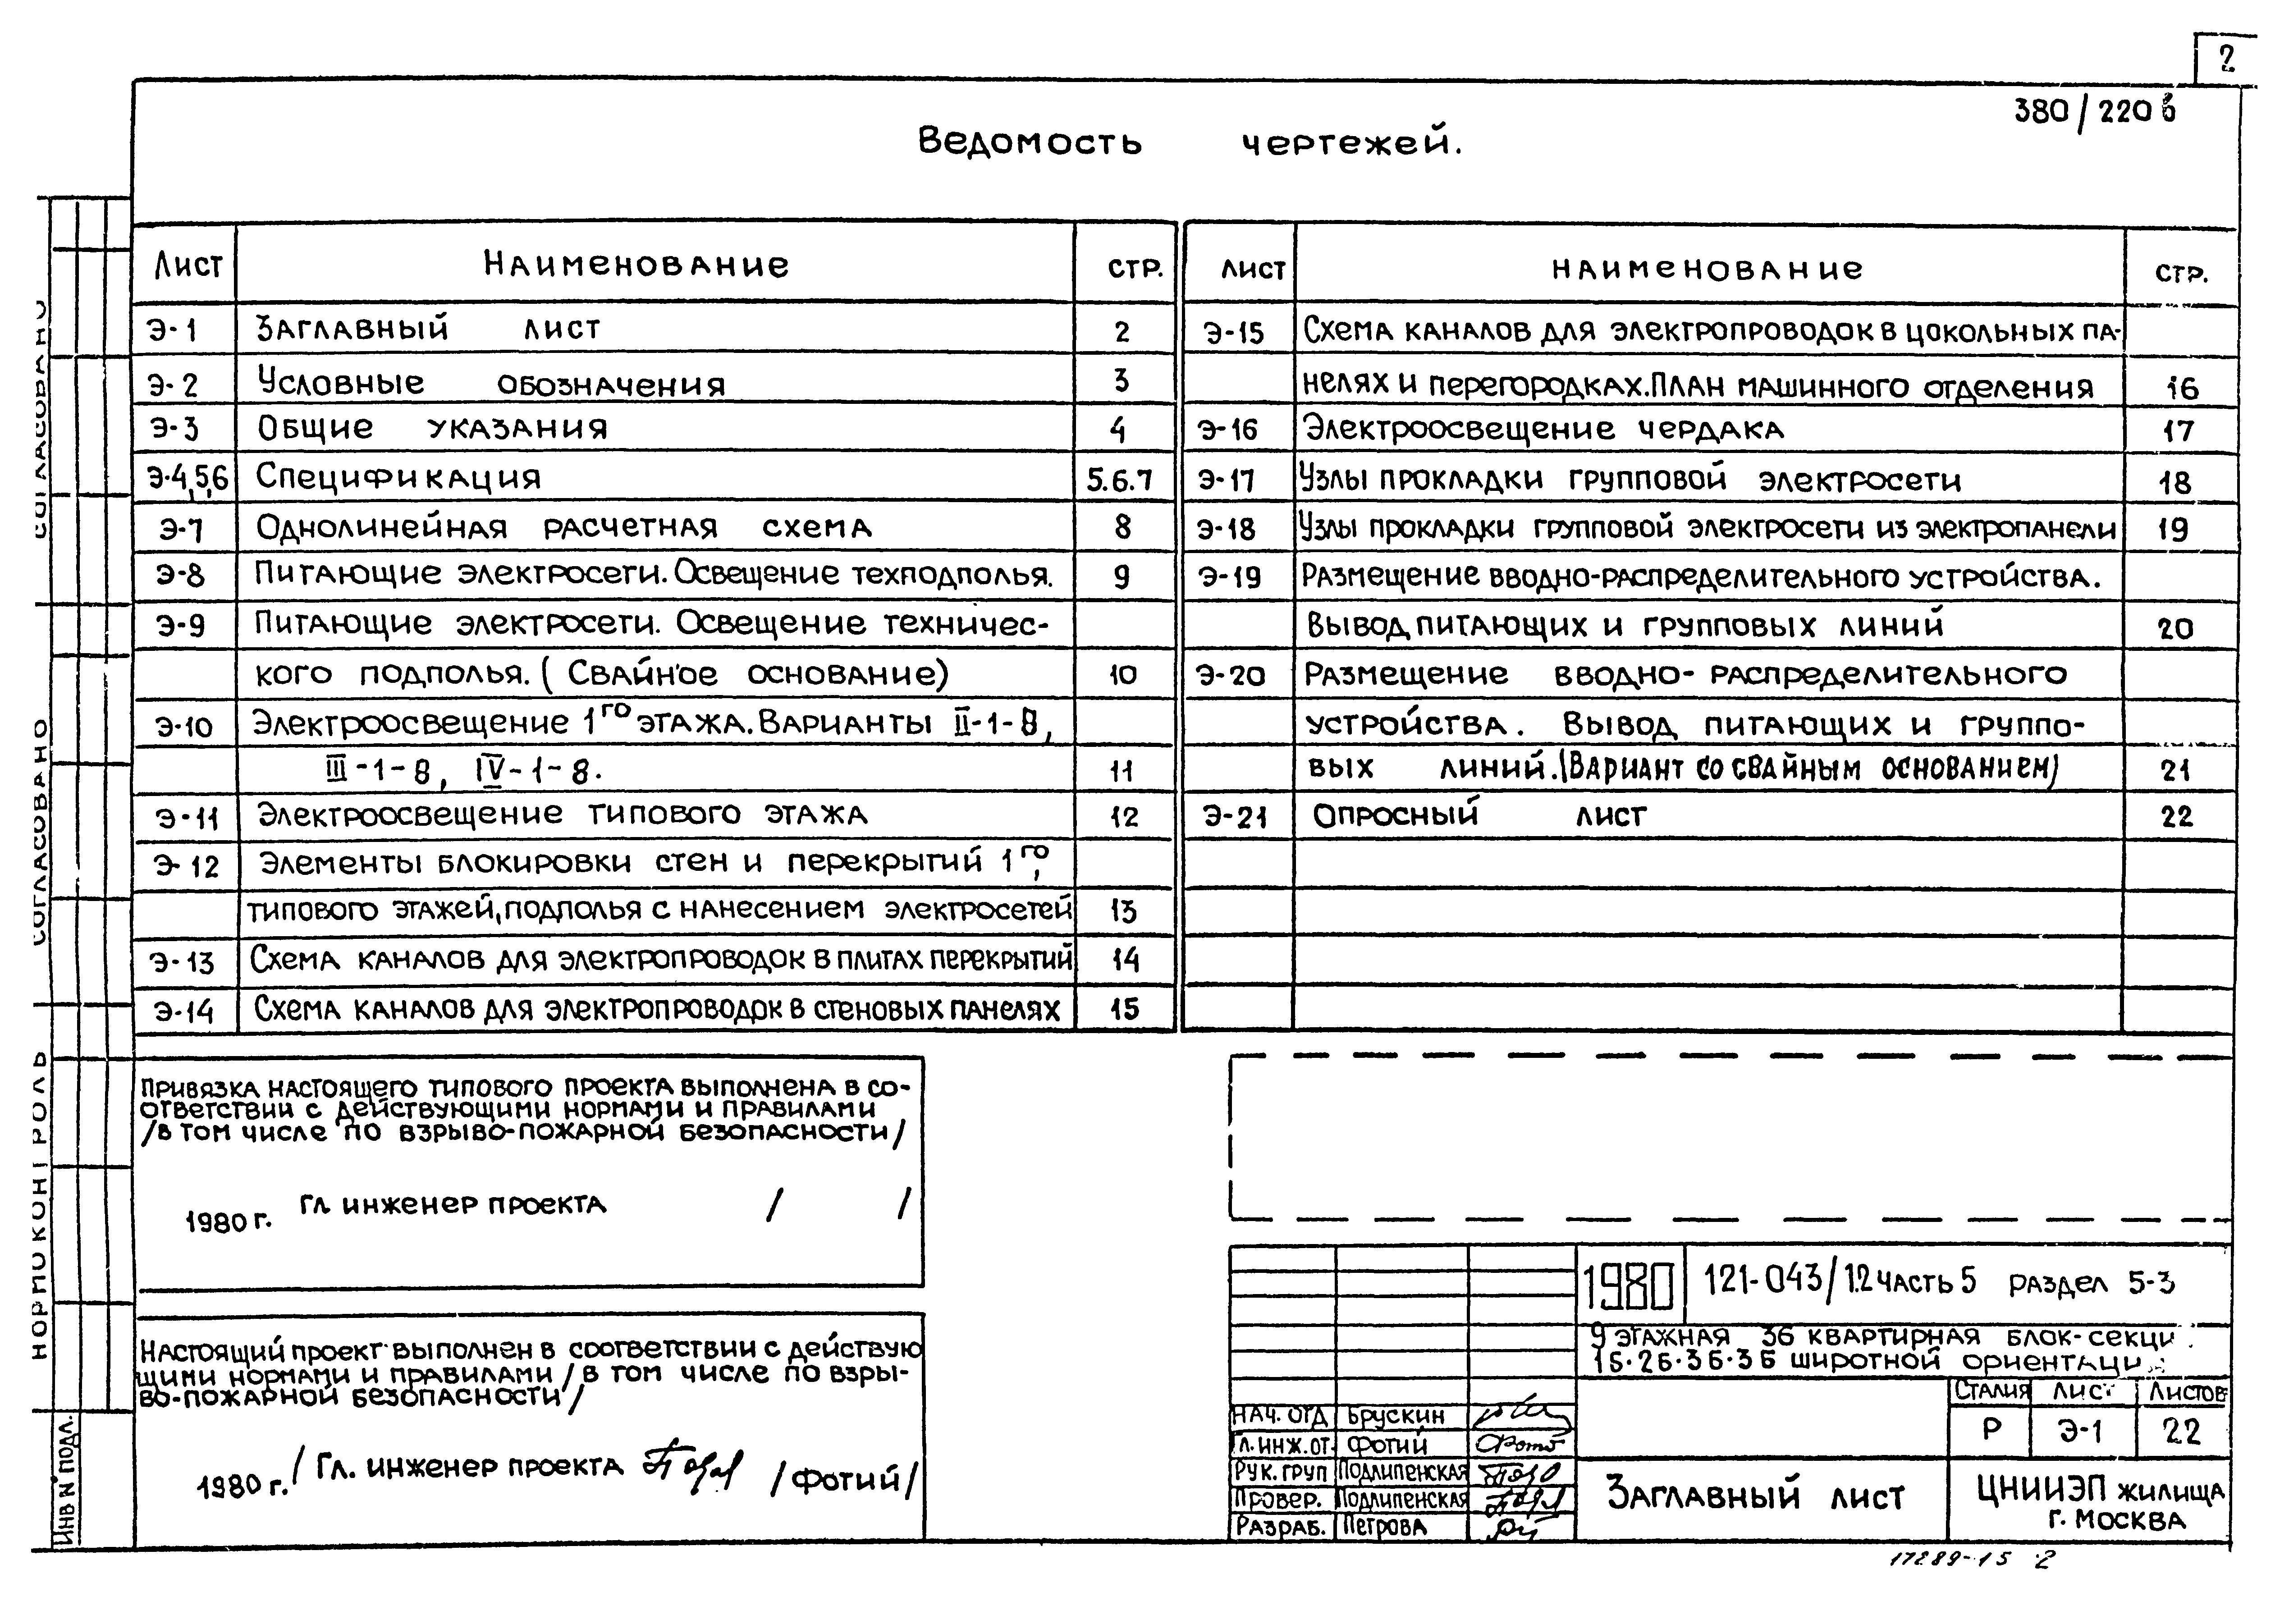 2
380/220в
Ведомость чертежей.
Лист Наименование стр.
Э-1 Заглавный лист 2
Э-2 Условные обозначения 3
Э-3 Общие указания 4
Э-4,5,6 Спецификация 5.6.7
Э-7 Однолинейная расчетная схема 8
Э-8 Питающие электросети. Освещение техподполья. 9
Э-9 Питающие электросети. Освещение техничес-
кого подполья. (Свайное основание) 10
Э-10 Электроосвещение 1го этажа. Варианты II-1-8,
III-1-8, IV-1-8. 11
Э-11 Электроосвещение типового этажа 12
Э-12 Элементы блокировки стен и перекрытий 1го,
типового этажей, подполья с нанесением электросетей 13
Э-13 Схема каналов для электропроводок в плитах перекрытий 14
Э-14 Схема каналов для электропроводок в стеновых панелях 15
лист наименование стр.
Э-15 Схема каналов для электропроводок в цокольных па-
нелях и перегородках. План машинного отделения 16
Э-16 Электроосвещение чердака 17
Э-17 Узлы прокладки групповой электросети 18
Э-18 Узлы прокладки групповой электросети из электропанели 19
Э-19 Размещение вводно-распределительного устройства.
Вывод питающих и групповых линий 20
Э-20 Размещение вводно-распределительного
устройства. Вывод питающих и группо-
вых линий. (Вариант со свайным основанием) 21
Э-21 Опросный лист 22
Привязка настоящего типового проекта выполнена в со-
ответствии с действующими нормами и правилами
/в том числе по взрыво-пожарной безопасности/
1980г. Гл инженер проекта / /
Настоящий проект выполнен в соответствии с действую
щими нормами и правилами /в том числе по взры-
во-пожарной безопасности/
1980г. / Гл. инженер проекта /Фотий/
согласовано
согласовано
нормоконтроль
Инв N подл.
1980 121-043/1.2 часть 5 раздел 5-3
9 этажная 36 квартирная блок-секци
1Б-2Б-3Б-3Б широтной ориентаци
Стадия Лист Листов
Р Э-1 22
Нач. отд Брускин
Гл. инж. от Фотий
Рук. груп Подлипенская
Провер. Подлипенская
Разраб. Петрова
Заглавный лист
ЦНИИЭП жилища
г. Москва
17289-15 2